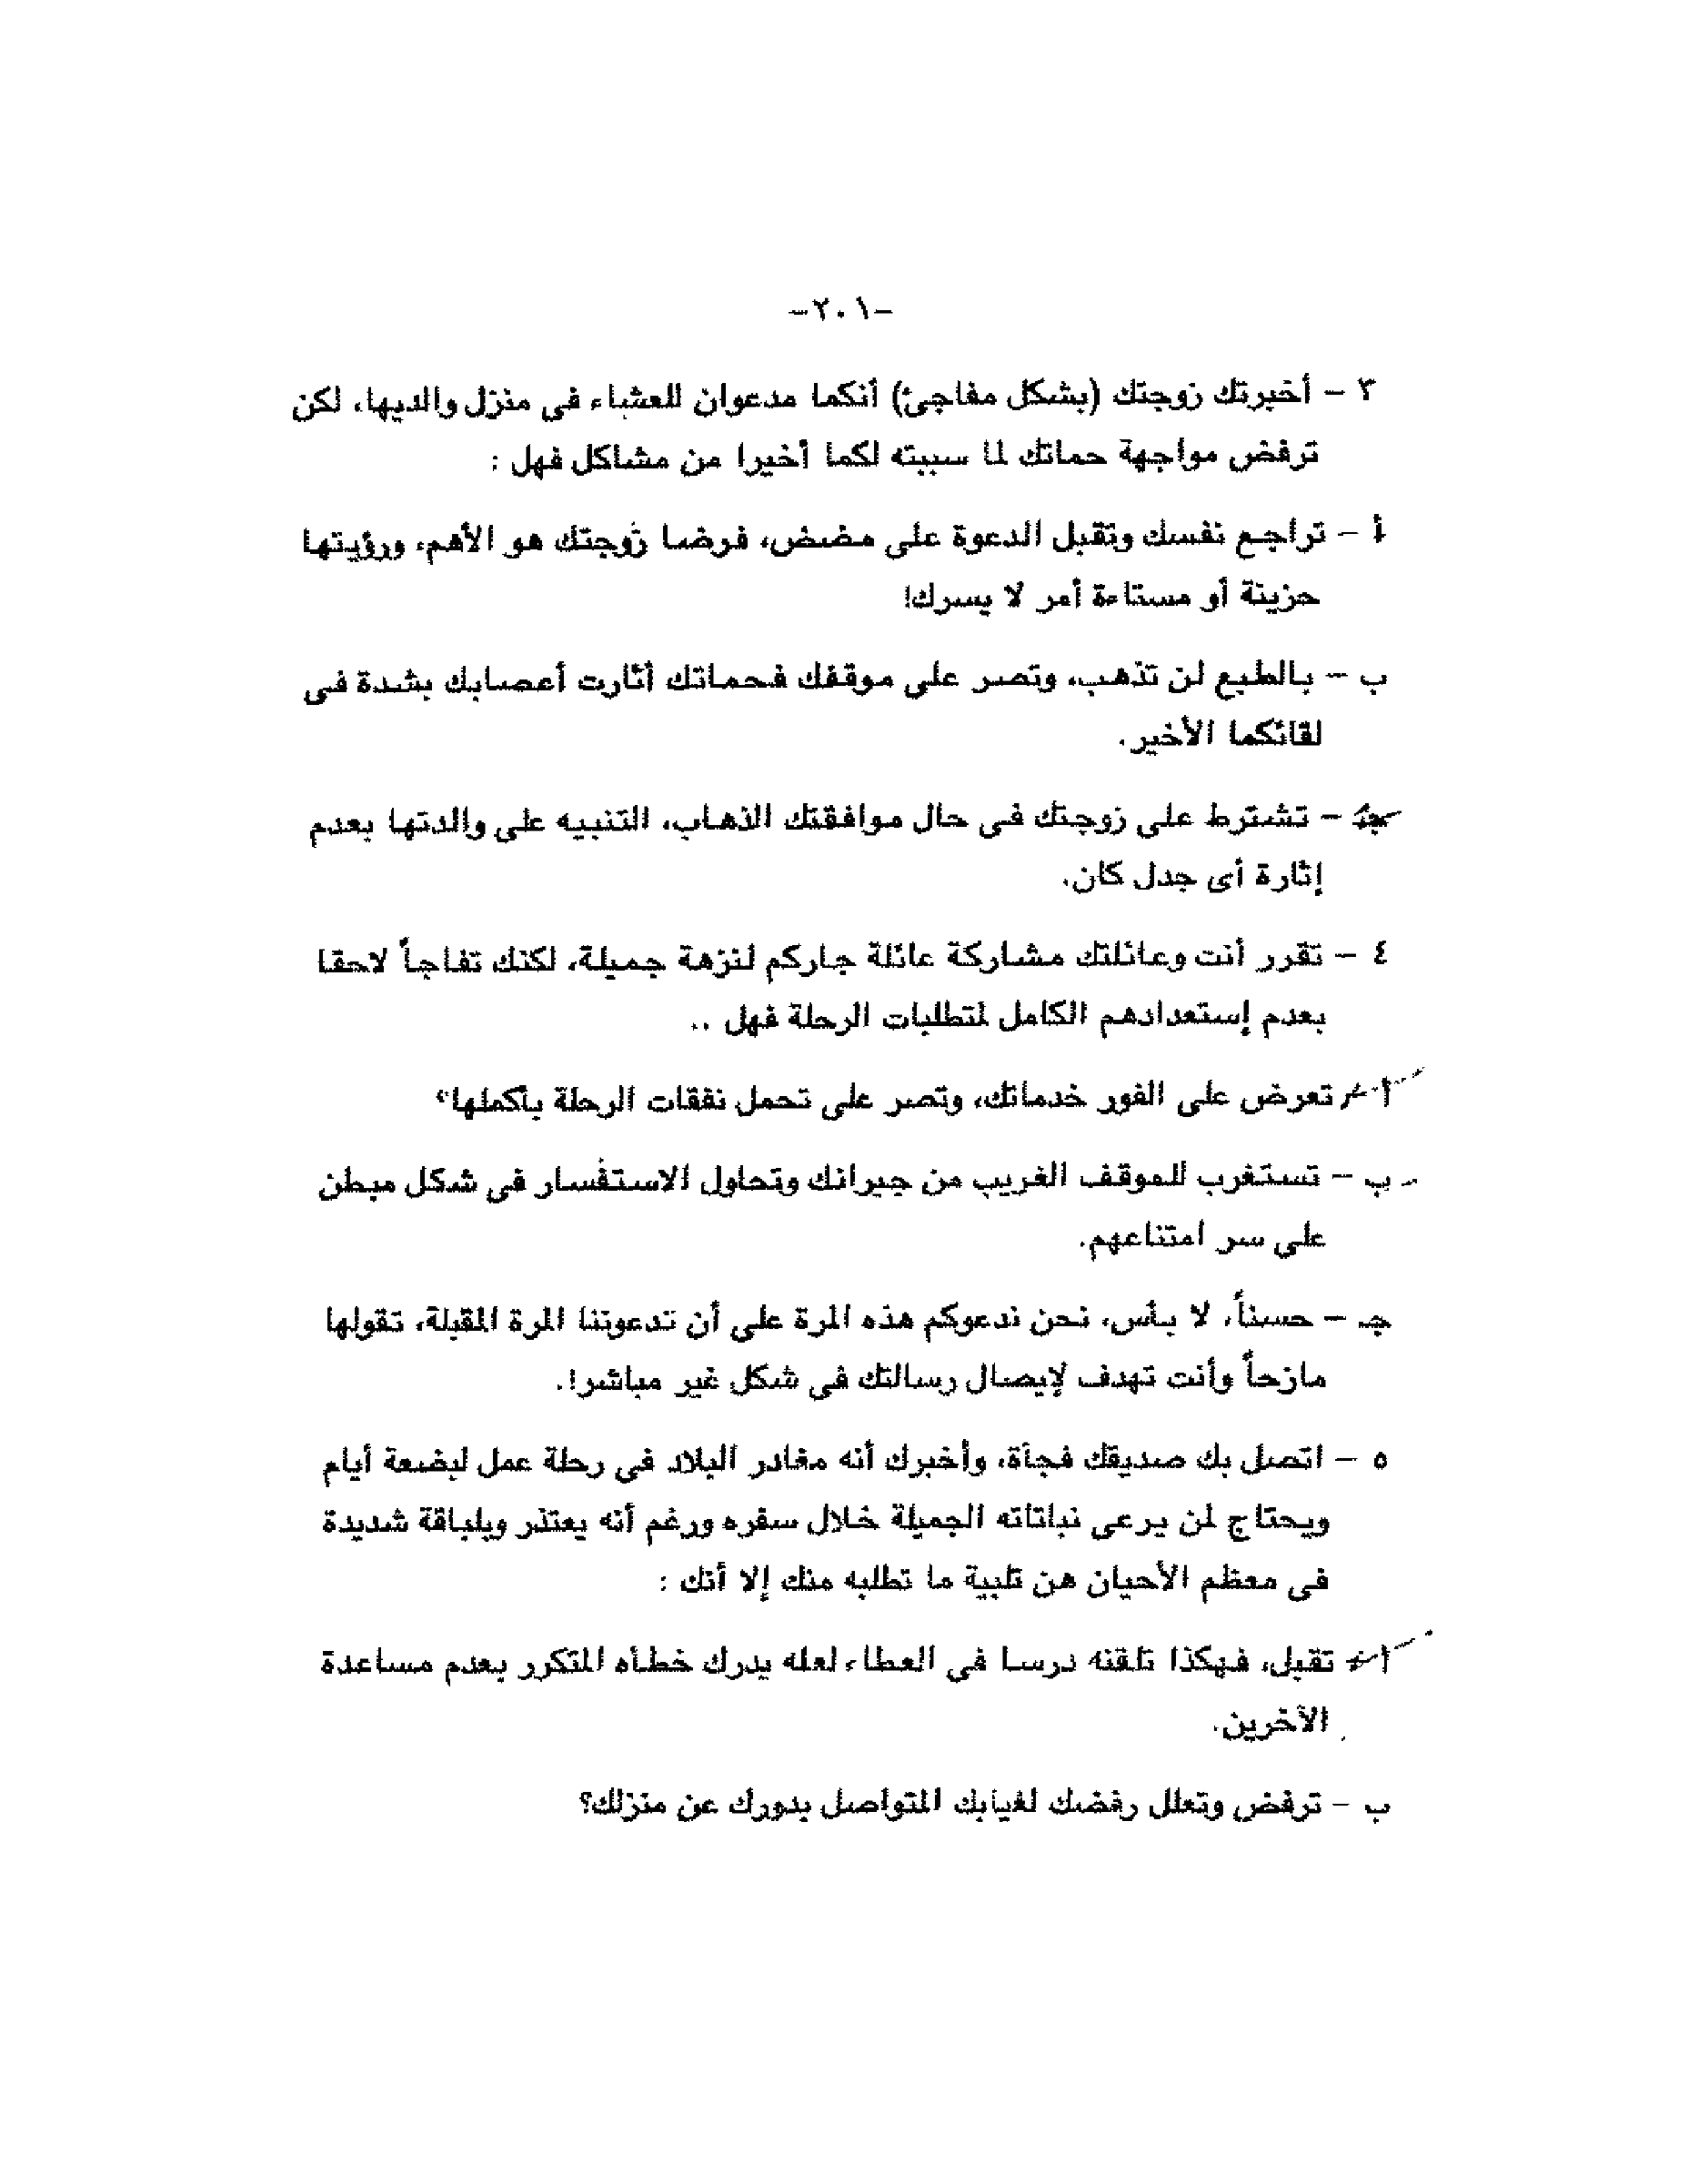 -٢٠١-
٣ - أخبرتك زوجتك (بشكل مفاجئ) أنكما مدعوان للعشاء فى منزل والديها، لكن
ترفض مواجهة حماتك لما سببته لكما أخيرا من مشاكل فهل :
أ - تراجع نفسك وتقبل الدعوة على مضض، فرضا زوجتك هو الأهم، ورؤيتها
حزينة أو مستاءة أمر لا يسرك!
ب - بالطبع لن تذهب، وتصر على موقفك فحماتك أثارت أعصابك بشدة فى
لقائكما الأخير.
جـ - تشترط على زوجتك فى حال موافقتك الذهاب، التنبيه على والدتها بعدم
إثارة أى جدل كان.
٤ - تقرر أنت وعائلتك مشاركة عائلة جاركم لنزهة جميلة، لكنك تفاجأ لاحقا
بعدم إستعدادهم الكامل لمتطلبات الرحلة فهل ..
أ - تعرض على الفور خدماتك، وتصر على تحمل نفقات الرحلة بأكملها؟
ب - تستغرب للموقف الغريب من جيرانك وتحاول الاستفسار فى شكل مبطن
على سر امتناعهم.
جـ - حسناً، لا بأس، نحن ندعوكم هذه المرة على أن تدعوننا المرة المقبلة، تقولها
مازحاً وأنت تهدف لإيصال رسالتك فى شكل غير مباشر!.
٥ - اتصل بك صديقك فجأة، وأخبرك أنه مغادر البلاد فى رحلة عمل لبضعة أيام
ويحتاج لمن يرعى نباتاته الجميلة خلال سفره ورغم أنه يعتذر وبلباقة شديدة
فى معظم الأحيان هن تلبية ما تطلبه منك إلا أنك :
أ - تقبل، فهكذا تلقنه درسا فى العطاء لعله يدرك خطأه المتكرر بعدم مساعدة
الآخرين.
ب - ترفض وتعلل رفضك لغيابك المتواصل بدورك عن منزلك؟